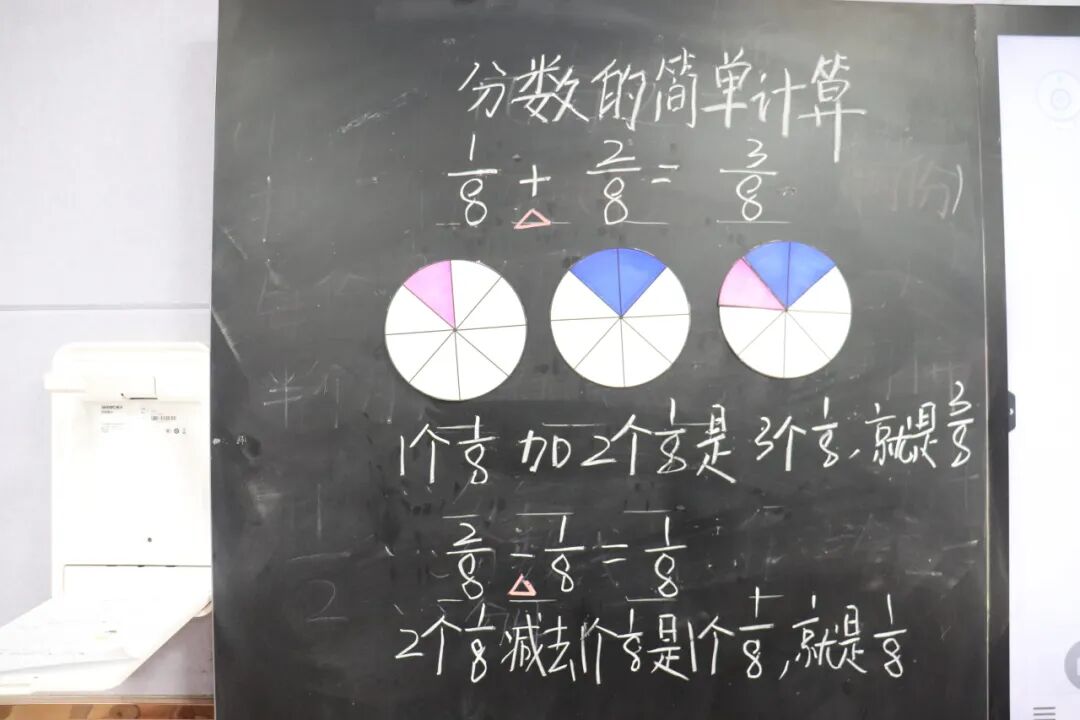 分数的简单计算
1/8 + 2/8 = 3/8
1个1/8加2个1/8是3个1/8,就是3/8
2/8 - 1/8 = 1/8
2个1/8减去1个1/8是1个1/8,就是1/8